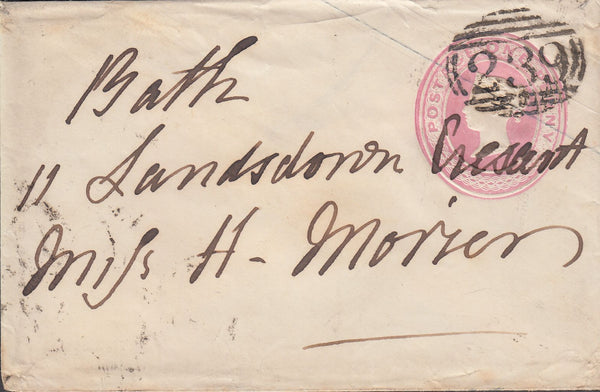 239
POSTAGE ONE PENNY
Bath
11 Landsdown Cresent
Miss H- Morier